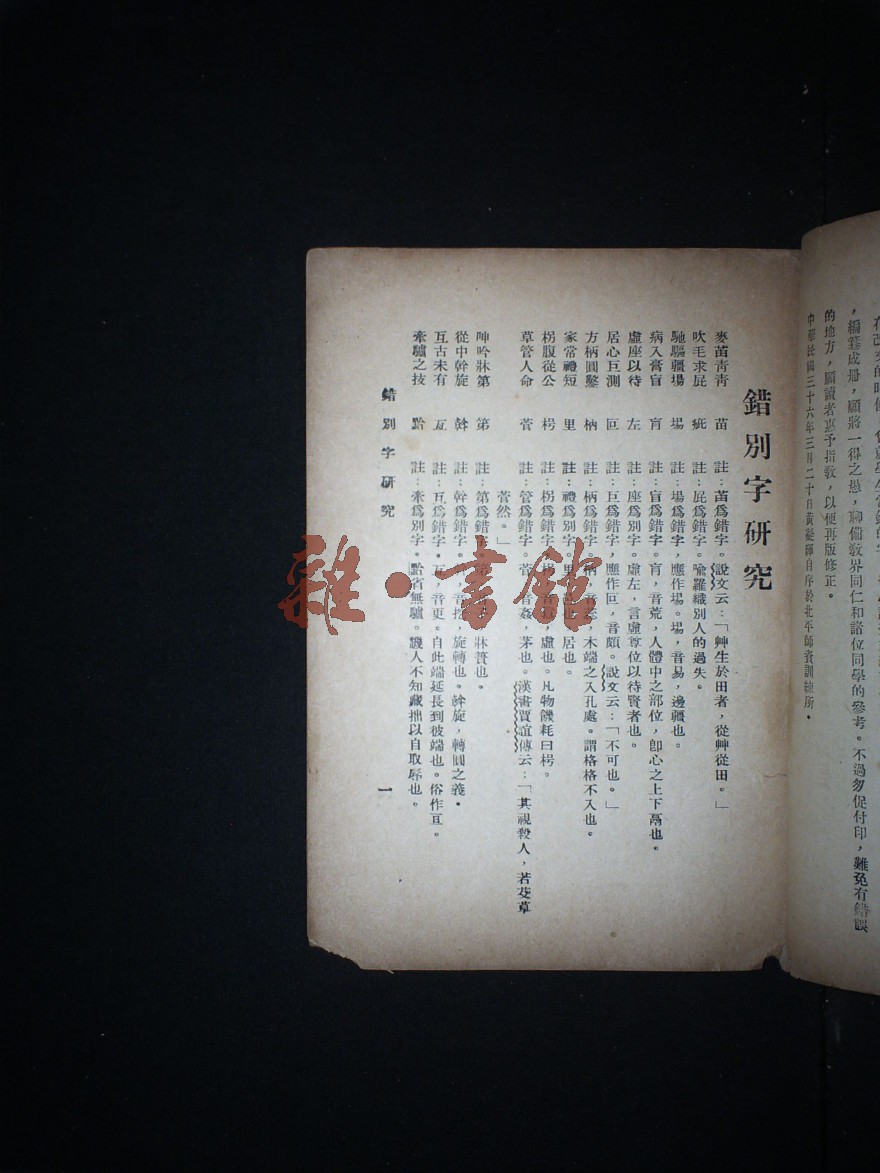 ，編纂成册，願將一得之愚，聊備敎界同仁和諸位同學的參考。不過匆促付印，難免有錯誤
的地方，願讀者惠予指敎，以便再版修正。
中華民國三十六年三月二十日黃凝暉自序於北平師資訓練所。
錯別字研究
麥苖靑靑　苗　註：苖爲錯字。說文云：「艸生於田者，從艸從田。」
吹毛求屁　疵　註：屁爲錯字。喩羅織別人的過失。
馳驅疆場　埸　註：場爲錯字，應作埸。埸，音易，邊疆也。
病入膏盲　肓　註：盲爲錯字。肓，音荒，人體中之部位，卽心之上下鬲也。
虛座以待　左　註：座爲別字。虛左，言虛尊位以待賢者也。
居心巨測　叵　註：巨爲錯字，應作叵，音頗。說文云：「不可也。」
方柄圓鑿　枘　註：柄爲錯字。枘，音芮，木端之入孔處。謂格格不入也。
家常禮短　里　註：禮爲別字。里，居也。
枴腹從公　枵　註：枴爲錯字。枵，虛也。凡物饑耗曰枵。
草管人命　菅　註：管爲錯字。菅，音姦，茅也。漢書賈誼傳云：「其視殺人，若芟草
菅然。」
呻吟牀第　笫　註：第爲錯字。牀簀也。
從中幹旋　斡　註：幹爲錯字。音挖，旋轉也。斡旋，轉圜之義。
互古未有　亙　註：互爲錯字。亙，音更。自此端延長到彼端也。俗作亘。
牽驢之技　黔　註：牽爲別字。黔省無驢。譏人不知藏拙以自取辱也。
錯別字硏究
一
雜·書館